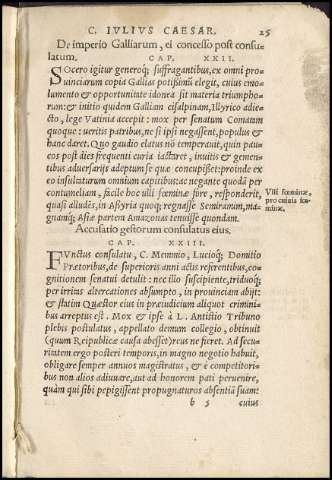 C. IVLIVS CAESAR. 25
De imperio Galliarum, ei concesso post consu-
latum.
CAP. XXII.
SOcero igitur generoq; suffragantibus, ex omni pro-
uinciarum copia Gallias potißimũ elegit, cuius emo-
lumento & opportunitate idonea sit materia triumpho-
rum: & initio quidem Galliam cisalpinam, Illyrico adie-
cto, lege Vatinia accepit: mox per senatum Comatam
quoque: ueritis patribus, ne si ipsi negassent, populus &
hanc daret. Quo gaudio elatus nõ temperauit, quin pau-
cos post dies frequenti curia iactaret, inuitis & gemen-
tibus aduersarijs adeptum se quæ concupisset: proinde ex
eo insultaturum omnium capitibus: ac negante quodã per
contumeliam, facile hoc ulli fœminæ fore, responderit,
quasi alludẽs, in Assyria quoq; regnasse Semiramim, ma-
gnamq; Asiæ partem Amazonas tenuisse quondam.
Vlli fœminæ,
pro cuiuis fœ-
minæ.
Accusatio gestorum consulatus eius.
CAP. XXIII.
FVnctus consulatu, C. Memmio, Lucioq; Domitio
Prætoribus, de superioris anni actis referentibus, co-
gnitionem senatui detulit: nec illo suscipiente, triduoq;
per irritas altercationes absumpto, in prouinciam abijt:
& statim Quæstor eius in præiudicium aliquot crimini-
bus arreptus est. Mox & ipse à L. Antistio Tribuno
plebis postulatus, appellato demum collegio, obtinuit
(quum Reipublicæ causa abesset) reus ne fieret. Ad secu-
ritatem ergo posteri temporis, in magno negotio habuit,
obligare semper annuos magistratus, & è competitori-
bus non alios adiuuare, aut ad honorem pati peruenire,
quàm qui sibi pepigissent propugnaturos absentiã suam:
b 5 cuius